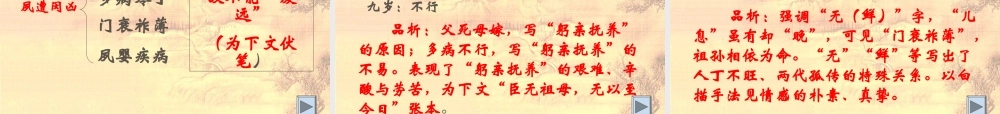 夙遭闵凶
门衰祚薄
夙婴疾病
远”
（为下文伏
笔）
九岁：不行
品析：父死母嫁，写“躬亲抚养”
的原因；多病不行，写“躬亲抚养”的
不易。表现了“躬亲抚养”的艰难、辛
酸与劳苦，为下文“臣无祖母，无以至
今日”张本。
品析：强调“无（鲜）”字，“儿
息”虽有却“晚”，可见“门衰祚薄”，
祖孙相依为命。“无”“鲜”等写出了
人丁不旺、两代孤传的特殊关系。以白
描手法见情感的朴素、真挚。